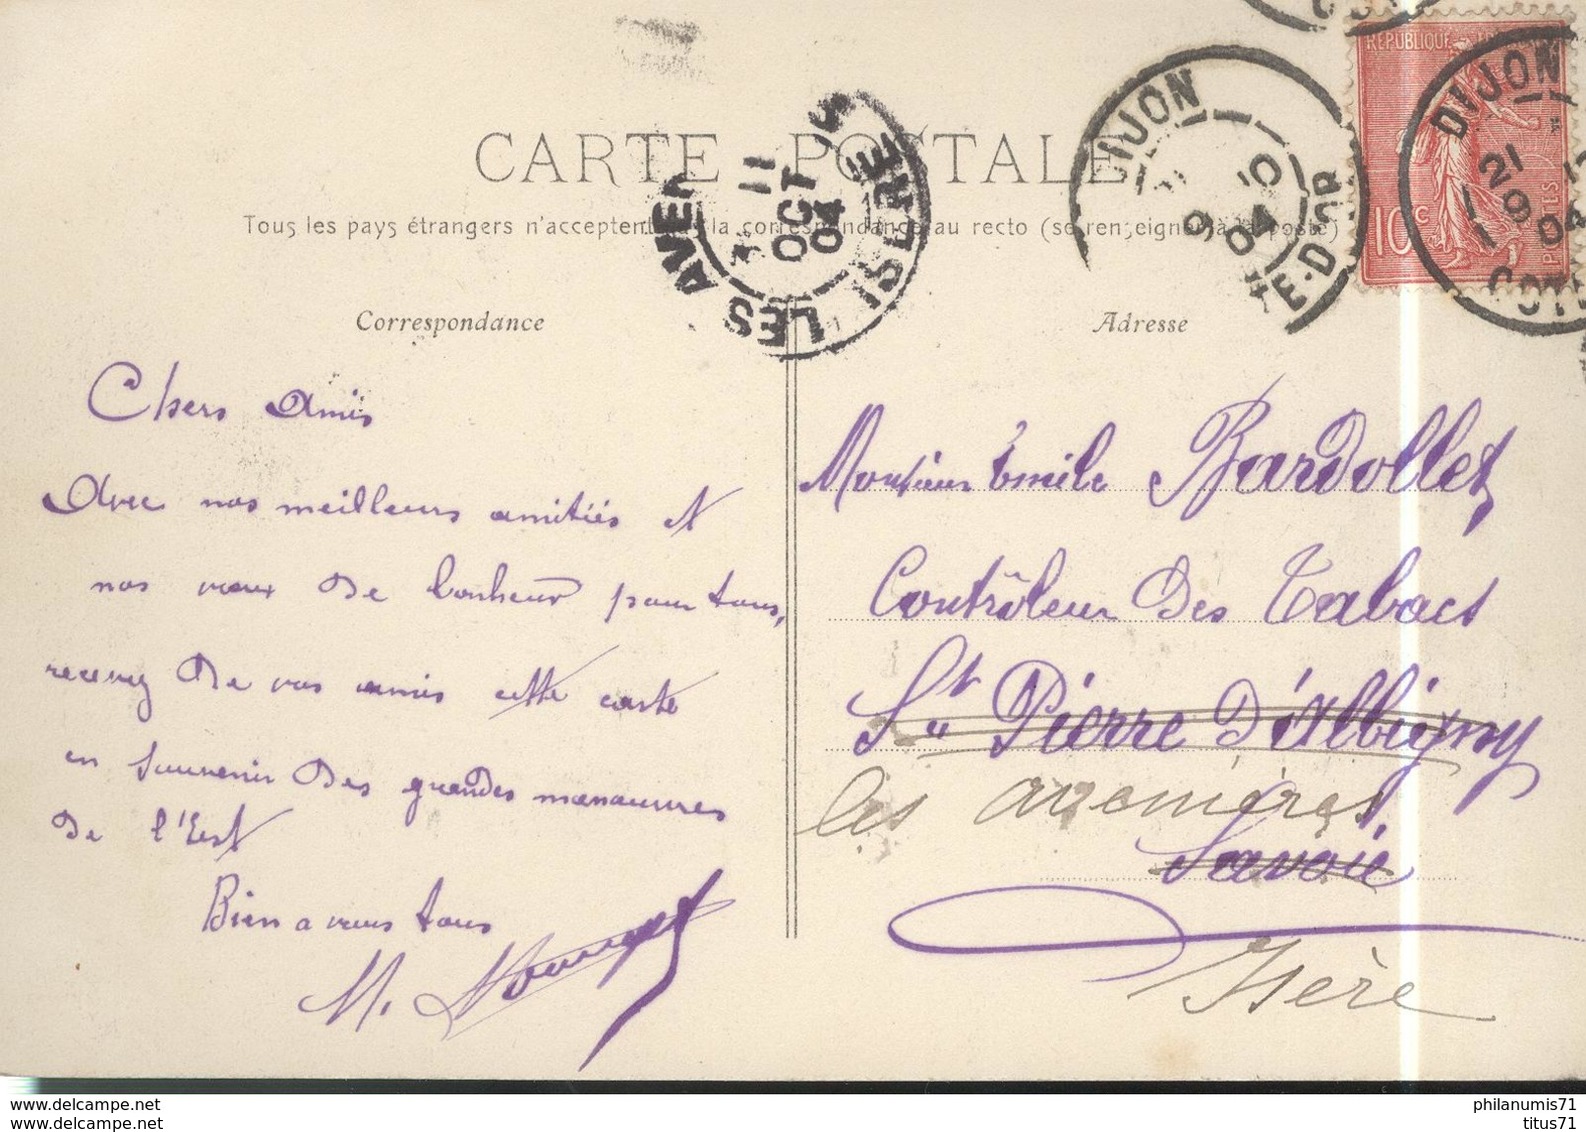 CARTE POSTALE
Tous les pays étrangers n'acceptent la correspondance au recto (se renseigner à la poste)
LES AVEN
ISERE
11
OCT
04
DIJON
9 10
04
TE-D'OR
REPUBLIQUE
10c
POSTES
DIJON
21
9
04
COTE
Correspondance
Chers Amis
Avec nos meilleurs amitiés et
nos vœux de bonheur pour tous,
recevez de vos amis cette carte
en souvenir des grandes manœuvres
de l'Est
Bien a vous tous
M.
Adresse
Monsieur Emile Bardollet
Contrôleur des Tabacs
St Pierre d'Albigny
les avenières
Savoie
Isère
delcampe.net
delcampe.net
philanumis71
titus71